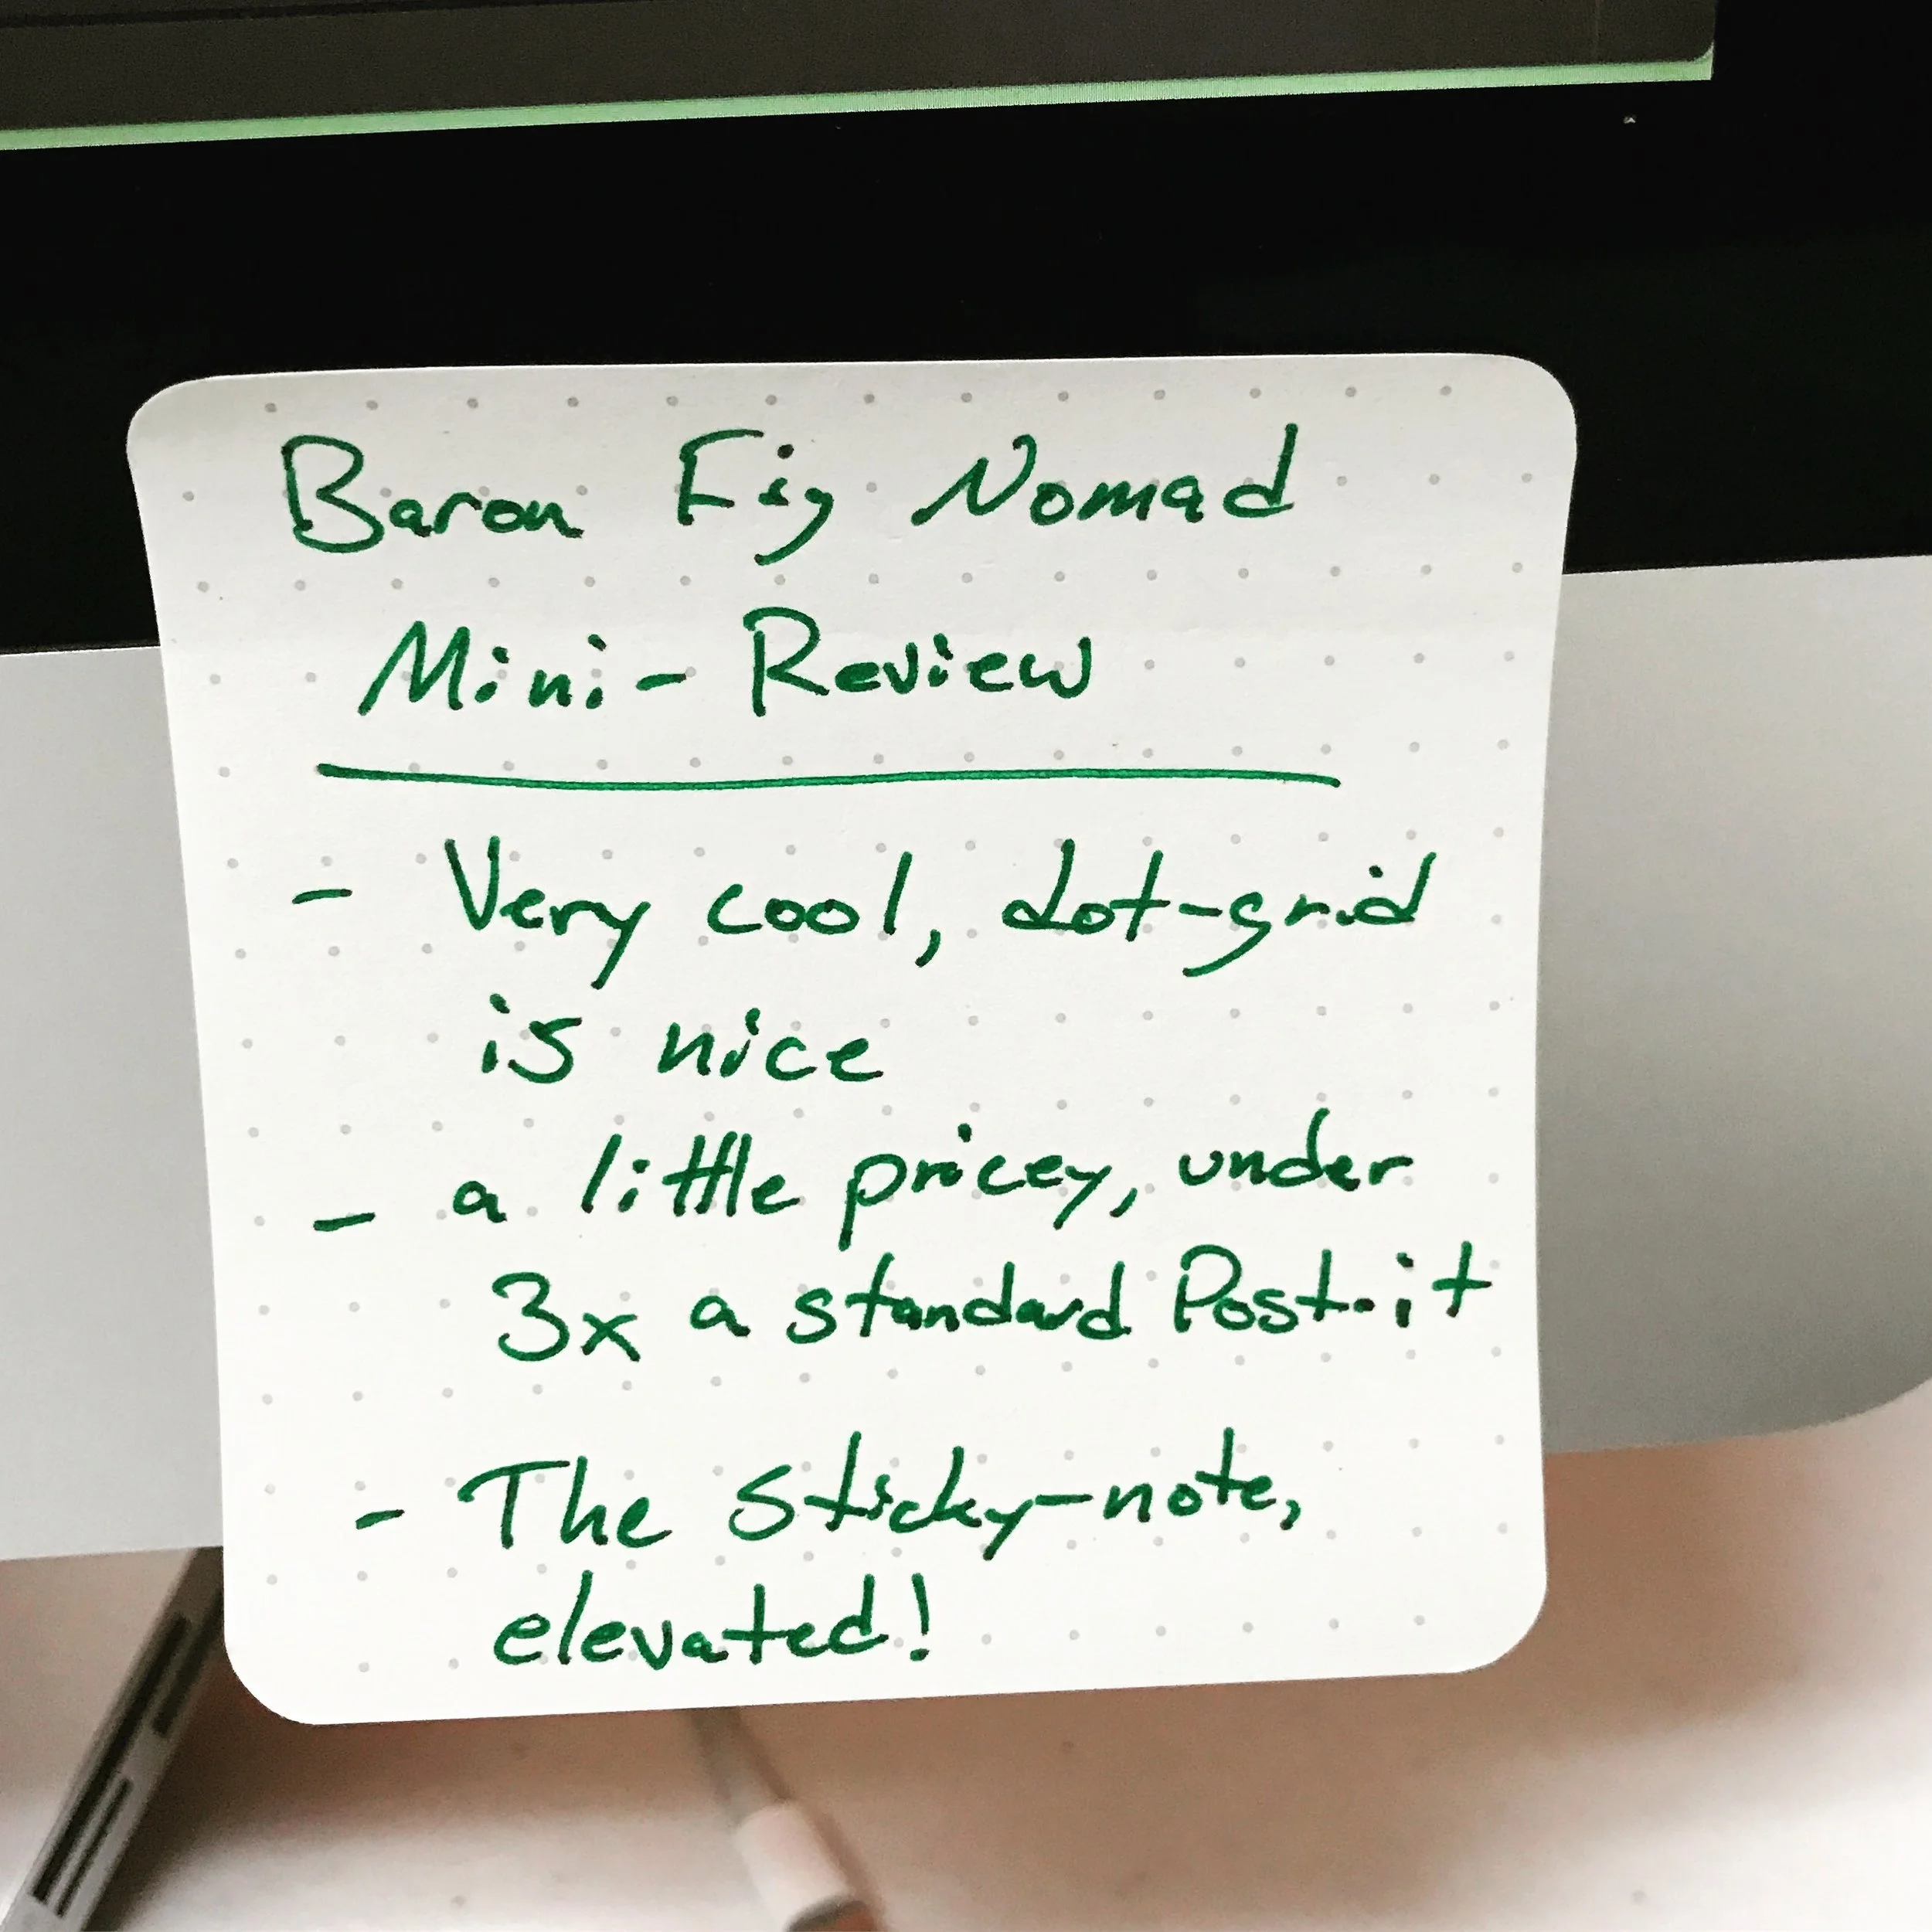 Baron Fig Nomad
Mini-Review
- Very cool, dot-grid
is nice
- a little pricey, under
3x a standard Post-it
- The sticky-note,
elevated!